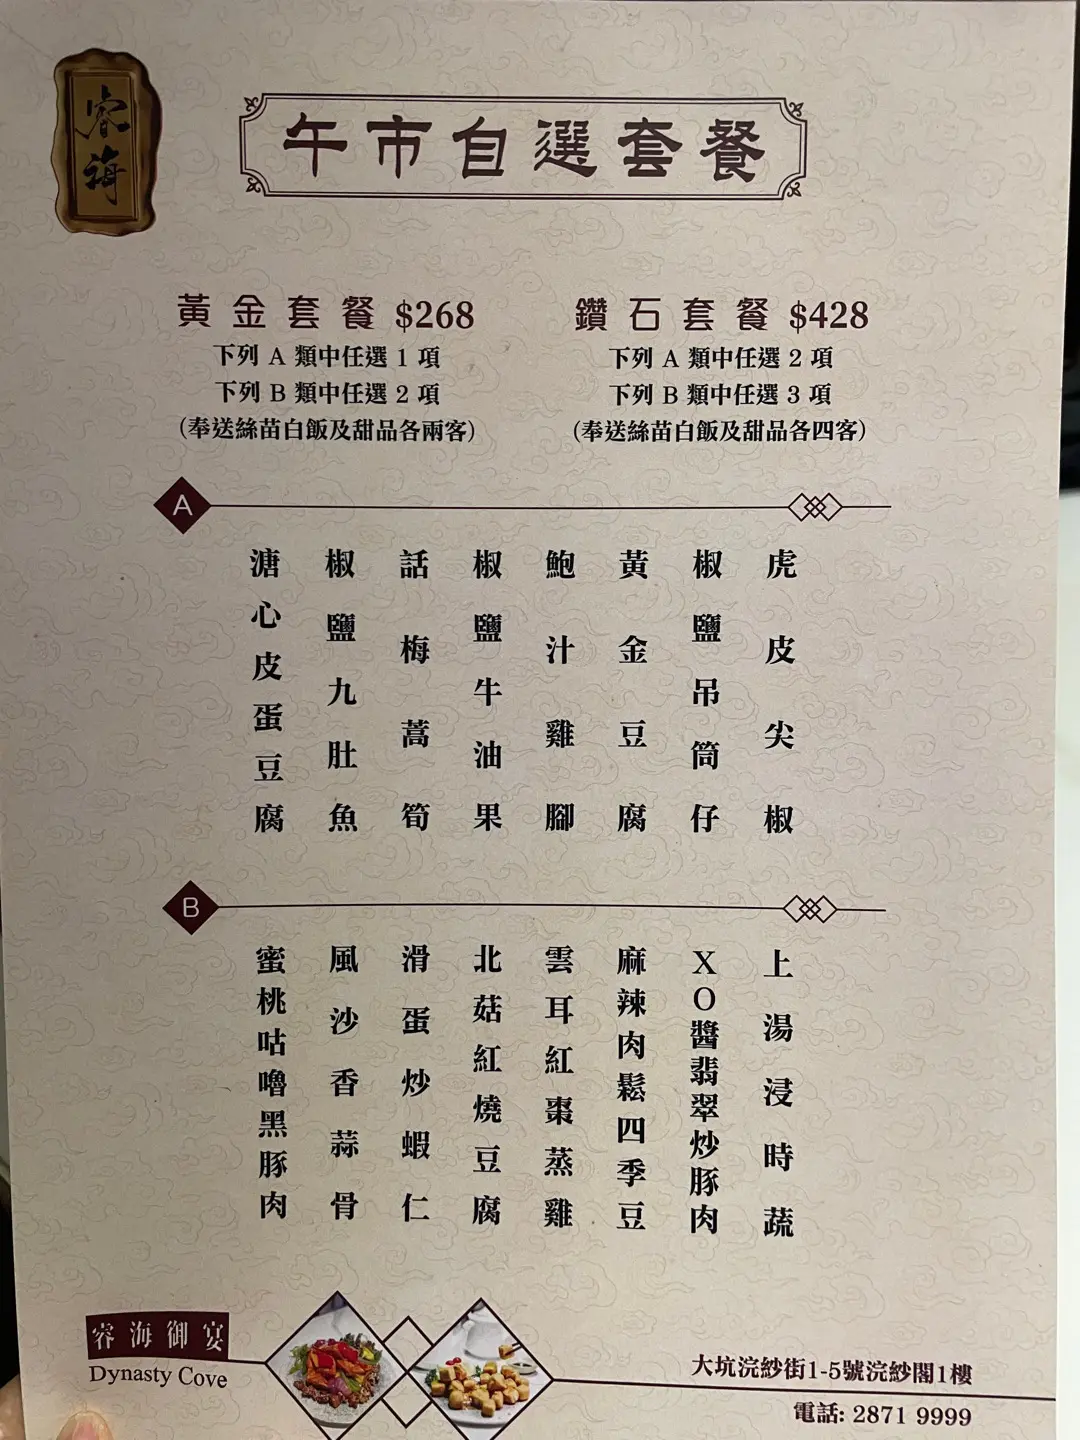 睿海
午市自選套餐
黃金套餐 $268
下列 A 類中任選 1 項
下列 B 類中任選 2 項
(奉送絲苗白飯及甜品各兩客)
鑽石套餐 $428
下列 A 類中任選 2 項
下列 B 類中任選 3 項
(奉送絲苗白飯及甜品各四客)
A
虎皮尖椒
椒鹽吊筒仔
黃金豆腐
鮑汁雞腳
椒鹽牛油果
話梅蒿筍
椒鹽九肚魚
溏心皮蛋豆腐
B
上湯浸時蔬
XO醬翡翠炒豚肉
麻辣肉鬆四季豆
雲耳紅棗蒸雞
北菇紅燒豆腐
滑蛋炒蝦仁
風沙香蒜骨
蜜桃咕嚕黑豚肉
睿海御宴
Dynasty Cove
大坑浣紗街1-5號浣紗閣1樓
電話: 2871 9999